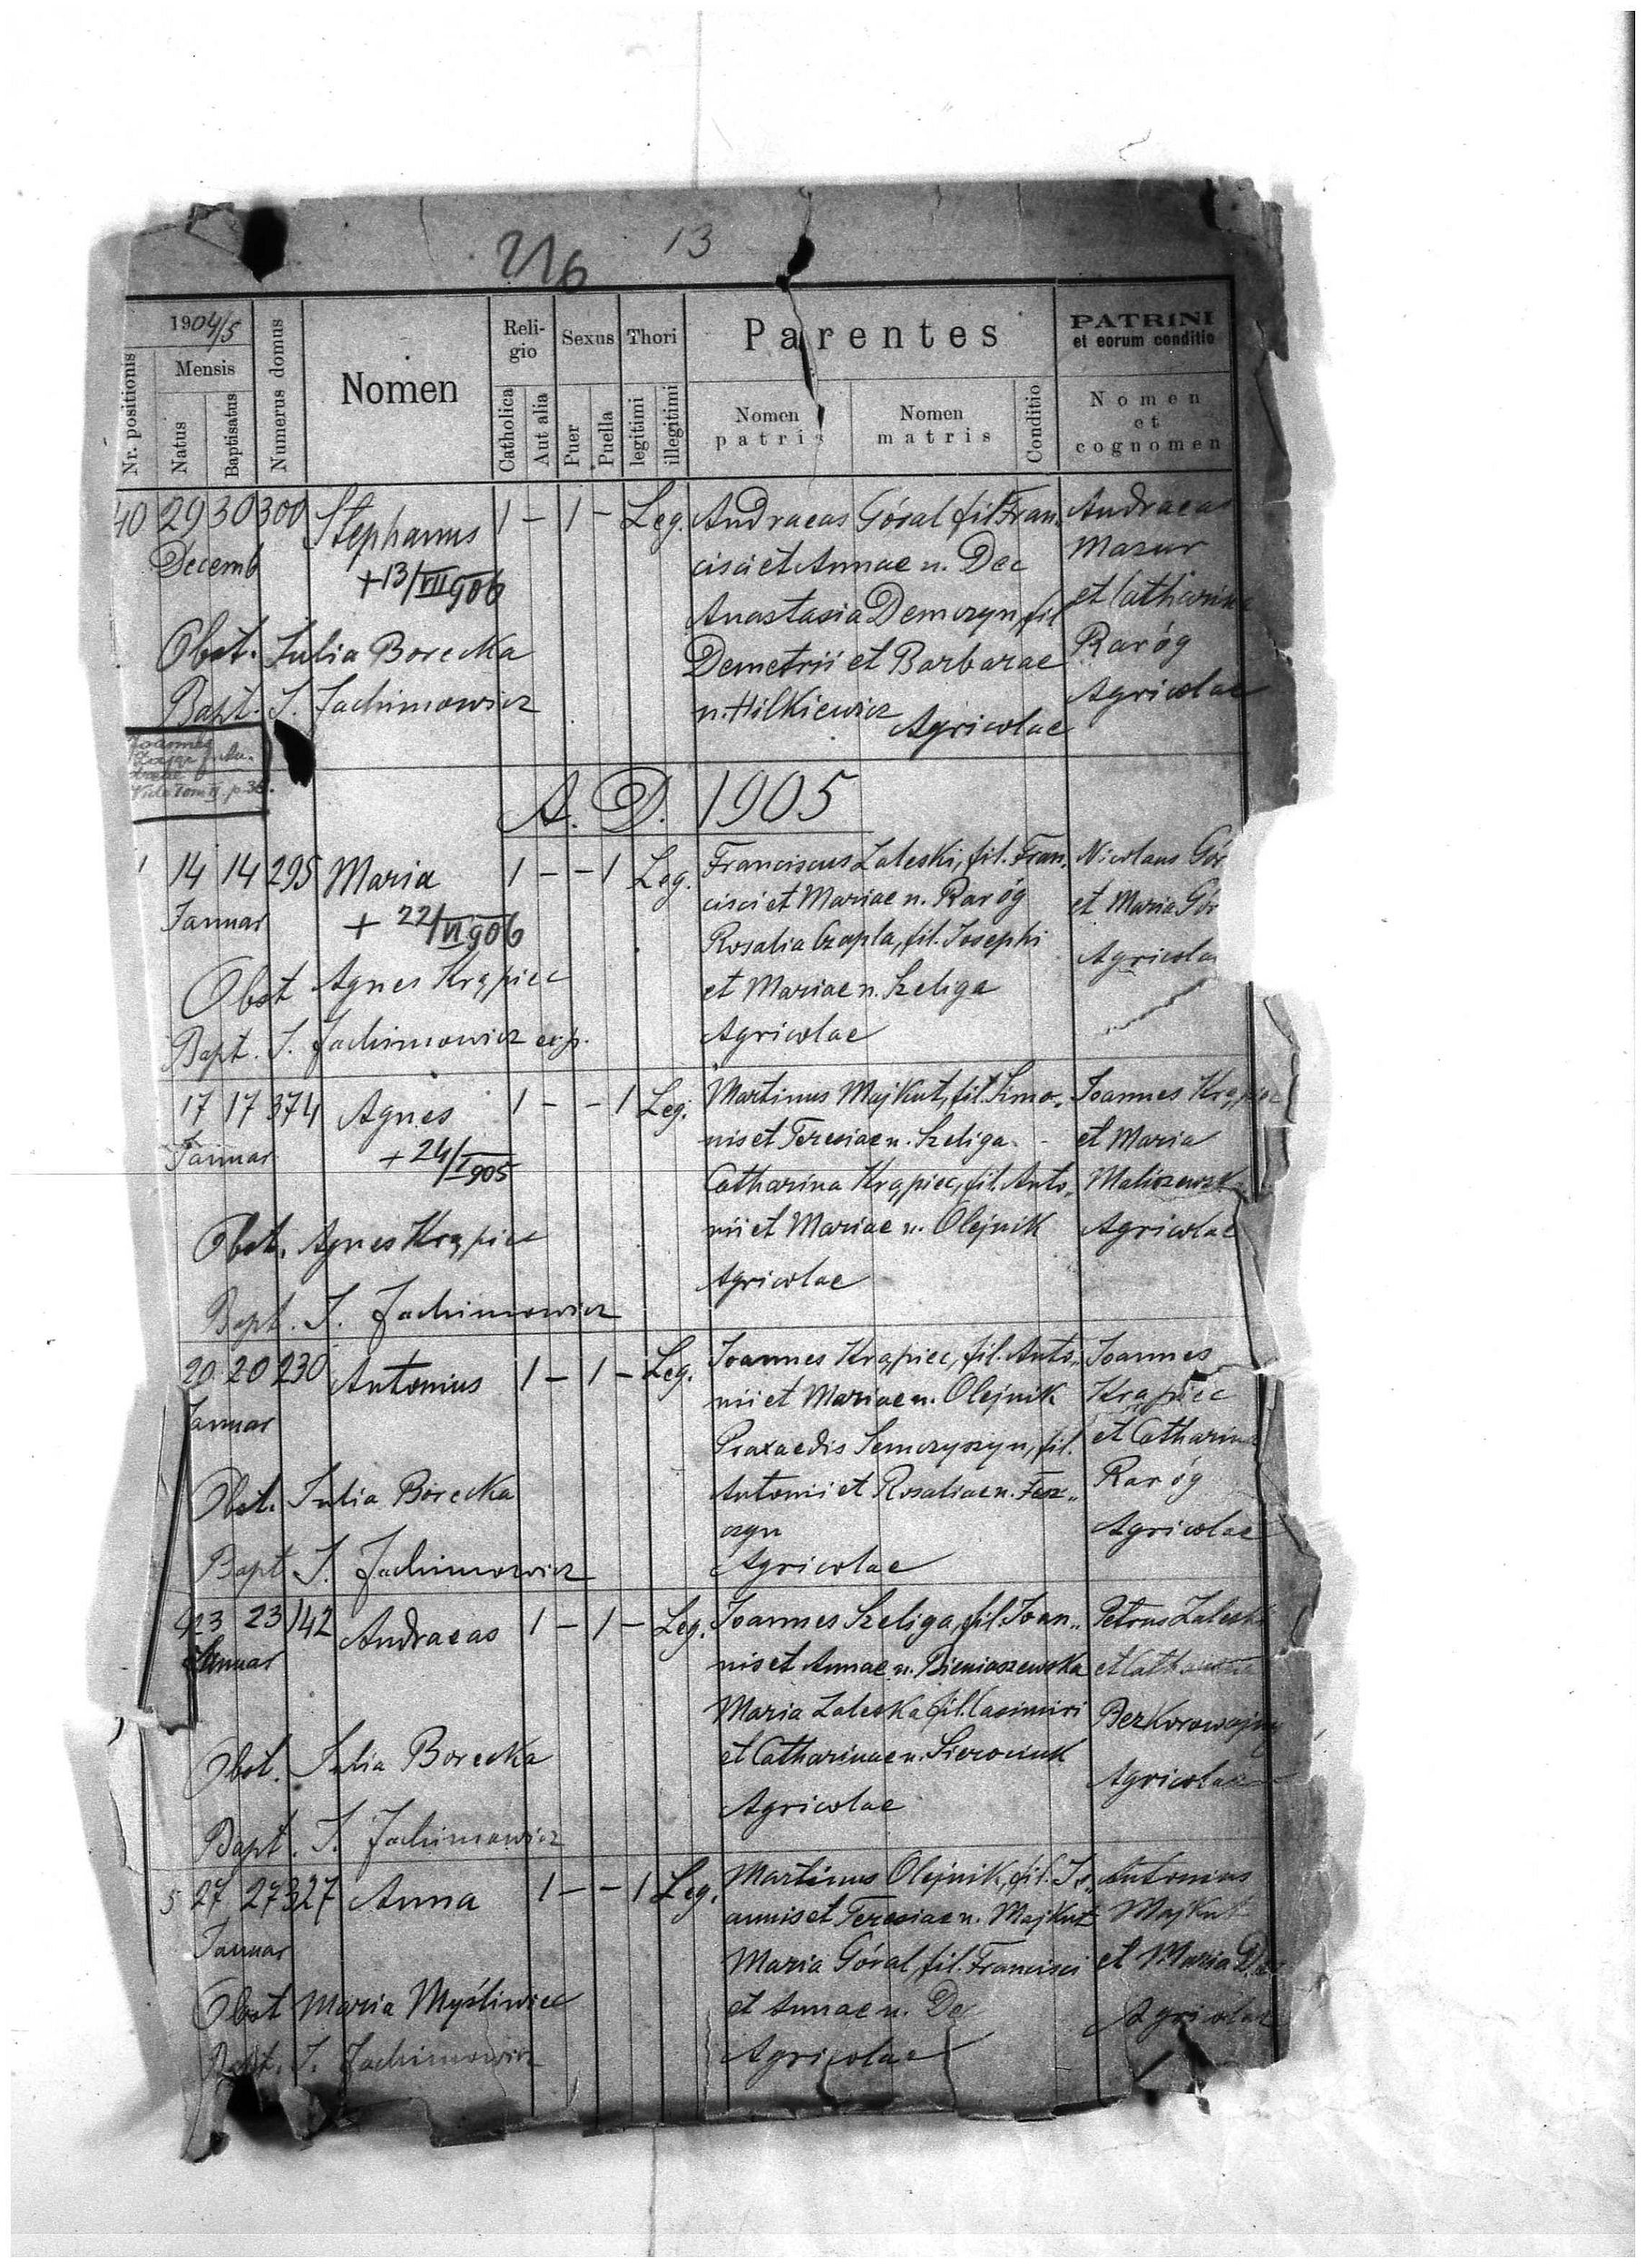 216 13
1904/5
Nr. positionis
Mensis
Natus
Baptisatus
Numerus domus
Nomen
Religio
Catholica
Aut alia
Sexus
Puer
Puella
Thori
legitimi
illegitimi
Parentes
Nomen patris
Nomen matris
Conditio
PATRINI
et eorum conditio
Nomen
et
cognomen
40 29 30 300 Stephanus 1 - 1 - Leg.
Decemb
+13/VII 906
Obst. Julia Borecka
Bapt. J. Jachimowicz
Andraeas Góral fil. Fran„
cisci et Annae n. Dec
Anastasia Demczyn, fil
Demetrii et Barbarae
n. Hilkiewicz
Agricolae
Andraeas
Mazur
et Catharina
Raróg
Agricolae
Vide Tom II p. 36.
A. D. 1905
1 14 14 295 Maria 1 - - 1 Leg.
Januar
+ 22/VI 906
Obst Agnes Krąpiec
Bapt. J. Jachimowicz exp.
Franciscus Zaleski, fil. Fran„
cisci et Mariae n. Raróg
Rosalia Czapla, fil. Josephi
et Mariae n. Szeliga
Agricolae
Nicolaus Gór
et Maria Gór
Agricola
17 17 374 Agnes 1 - - 1 Leg.
Januar
+ 24/I 905
Obst. Agnes Krąpiec
Bapt. J. Jachimowicz
Martinus Majkut, fil. Simo„
nis et Teresiae n. Szeliga
Catharina Krąpiec, fil. Anto„
nii et Mariae n. Olejnik
Agricolae
Joannes Krąpiec
et Maria
Maliszewsk
Agricolae
20 20 230 Antonius 1 - 1 - Leg.
Januar
Obst. Julia Borecka
Bapt J. Jachimowicz
Joannes Krąpiec, fil. Anto„
nii et Mariae n. Olejnik
Praxaedis Semczyszyn, fil.
Antonii et Rosaliae n. Fesz„
czyn
Agricolae
Joannes
Krąpiec
et Catharina
Raróg
Agricolae
4 23 23 142 Andraeas 1 - 1 - Leg.
Januar
Obst. Julia Borecka
Bapt. J. Jachimowicz
Joannes Szeliga, fil. Joan„
nis et Annae n. Bieniaszewska
Maria Zaleska fil. Casimiri
et Catharinae n. Sierociuk
Agricolae
Petrus Zaleski
et Catharina
Berkorowajny
Agricolae
5 27 27 327 Anna 1 - - 1 Leg.
Januar
Obst Maria Myśliwiec
Bapt. J. Jachimowicz
Martinus Olejnik, fil. Jo„
annis et Teresiae n. Majkut
Maria Góral, fil. Francisci
et Annae n. Dec
Agricolae
Antonius
Majkut
et Maria
Agricolae